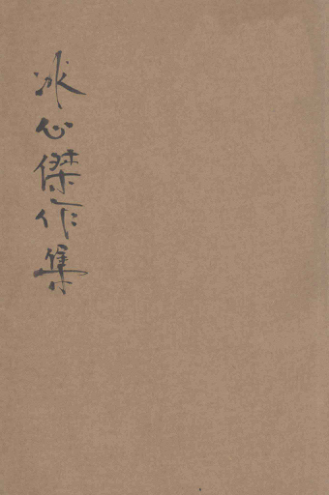 冰心傑作集